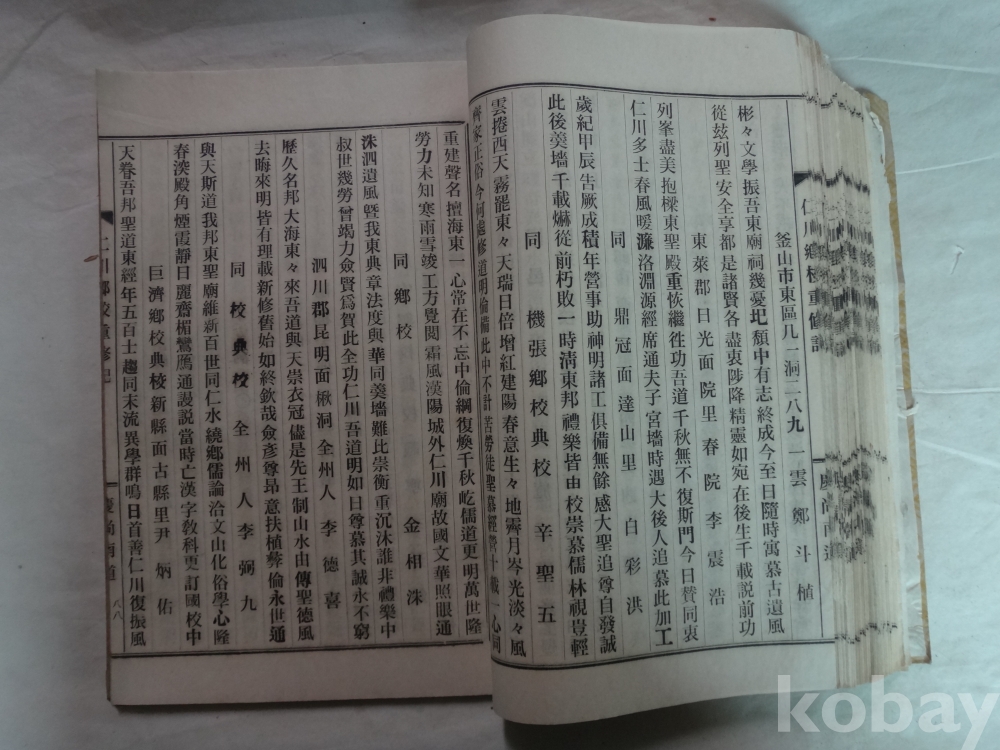 仁川鄉校重修記
慶尚南道
釜山市東區凡一洞二八九一 雲鄭斗植
彬々文學振吾東廟祠幾憂圮頽中有志終成今至日隨時寓慕古遺風
從玆列聖安全享都是諸賢各盡衷陟降精靈如宛在後生千載説前功
東萊郡日光面院里 春院 李震浩
列峯盡美抱樑東聖殿重恢繼徃功吾道千秋無不復斯門今日賛同衷
仁川多士春風暖濂洛淵源經席通夫子宮墻時遇大後人追慕此加工
同 鼎冠面達山里 白彩洪
歲紀甲辰吿厥成積年營事助神明諸工俱備無餘感大聖追尊自發誠
此後羮墻千載爀從前朽敗一時淸東邦禮樂皆由校崇慕儒林視豈輕
同 機張鄉校典校 辛聖五
雲捲西天霧罷東々天瑞日倍增紅建陽春意生々地霽月岑光淡々風
齊家正俗今何起修道明倫備此中不計苦勞徒聖慕經營十載一心同
重建聲名擅海東一心常在不忘中倫綱復煥千秋屹儒道更明萬世隆
勞力未知寒雨雪竣工方覺閱霜風漢陽城外仁川廟故國文華照眼通
同鄉校 金相洙
洙泗遺風曁我東典章法度與華同羮墻難比崇衡重沉沐誰非禮樂中
叔世幾勞曾竭力僉賢爲賀此全功仁川吾道明如日尊慕其誠永不窮
泗川郡昆明面楸洞全州人李德喜
歷久名邦大海東々來吾道與天崇衣冠儘是先王制山水由傳聖德風
去晦來明皆有理載新修舊始如終欽哉僉彥尊昂意扶植彜倫永世通
同校典校全州人李弼九
與天斯道我邦東聖廟維新百世同仁水繞鄉儒論洽文山化俗學心隆
春深殿角煙霞靜日麗齋楣鸞鴈通謾説當時亡漢字敎科更訂國校中
巨濟鄉校典校新縣面古縣里尹炳佑
天眷吾邦聖道東經年五百士趨同末流異學群鳴日首善仁川復振風
仁川鄉校重修記
慶尚南道
八八
kobay